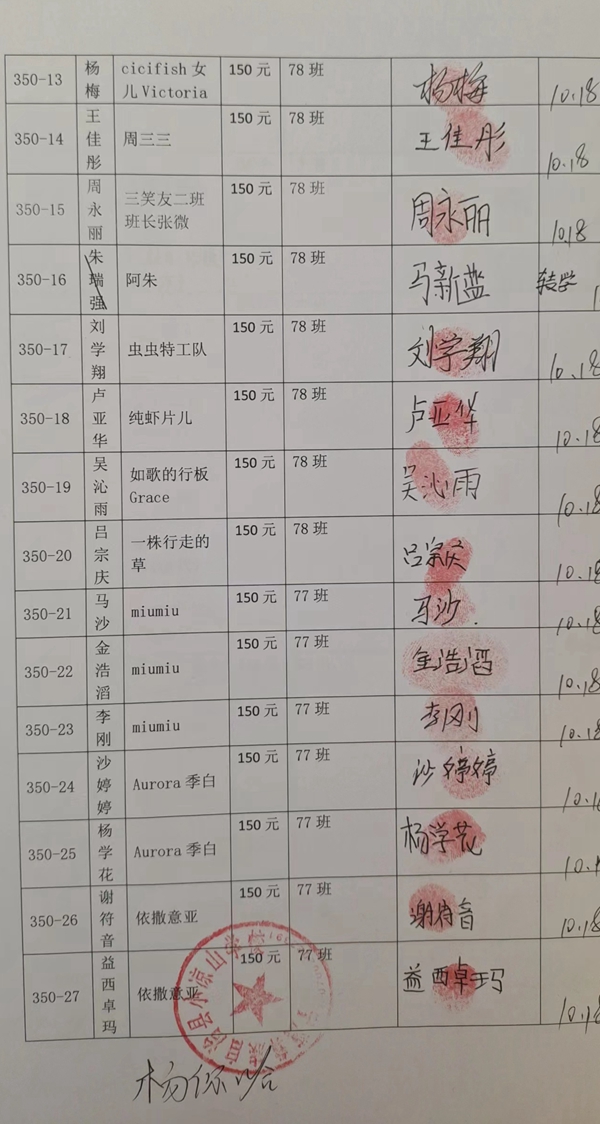 350-13 杨梅 cicifish女儿Victoria 150元 78班 杨梅 10.18
350-14 王佳彤 周三三 150元 78班 王佳彤 10.18
350-15 周永丽 三笑友二班班长张微 150元 78班 周永丽 10.18
350-16 朱瑞强 阿朱 150元 78班 马新蓝 转学
350-17 刘学翔 虫虫特工队 150元 78班 刘学翔 10.18
350-18 卢亚华 纯虾片儿 150元 78班 卢亚华 10.18
350-19 吴沁雨 如歌的行板Grace 150元 78班 吴沁雨 10.18
350-20 吕宗庆 一株行走的草 150元 78班 吕宗庆 10.18
350-21 马沙 miumiu 150元 77班 马沙. 10.18
350-22 金浩滔 miumiu 150元 77班 金浩滔 10.18
350-23 李刚 miumiu 150元 77班 李刚 10.18
350-24 沙婷婷 Aurora季白 150元 77班 沙婷婷
350-25 杨学花 Aurora季白 150元 77班 杨学花
350-26 谢符音 依撒意亚 150元 77班 谢符音 10.18
350-27 益西卓玛 依撒意亚 150元 77班 益西卓玛 10.18